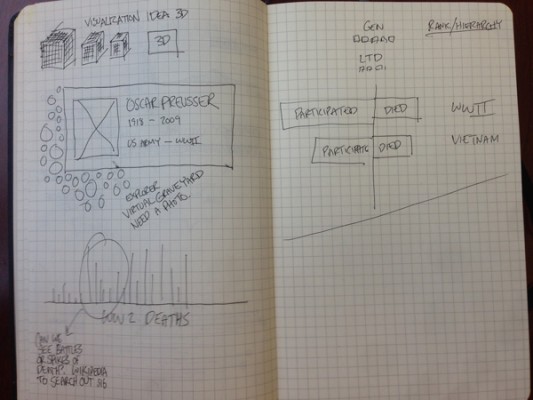 VISUALIZATION IDEA: 3D
3D
OSCAR PREUSSER
1918 - 2009
US ARMY - WWII
EXPLORER
VIRTUAL GRAVEYARD
NEED A PHOTO
WW2 DEATHS
CAN WE
SEE BATTLES
OR SPIKES OF
DEATH? WIKIPEDIA
TO SEARCH OUT
GEN
LTD
RANK/HIERARCHY
PARTICIPATED
DIED
WWII
PARTICIPATE
DIED
VIETNAM